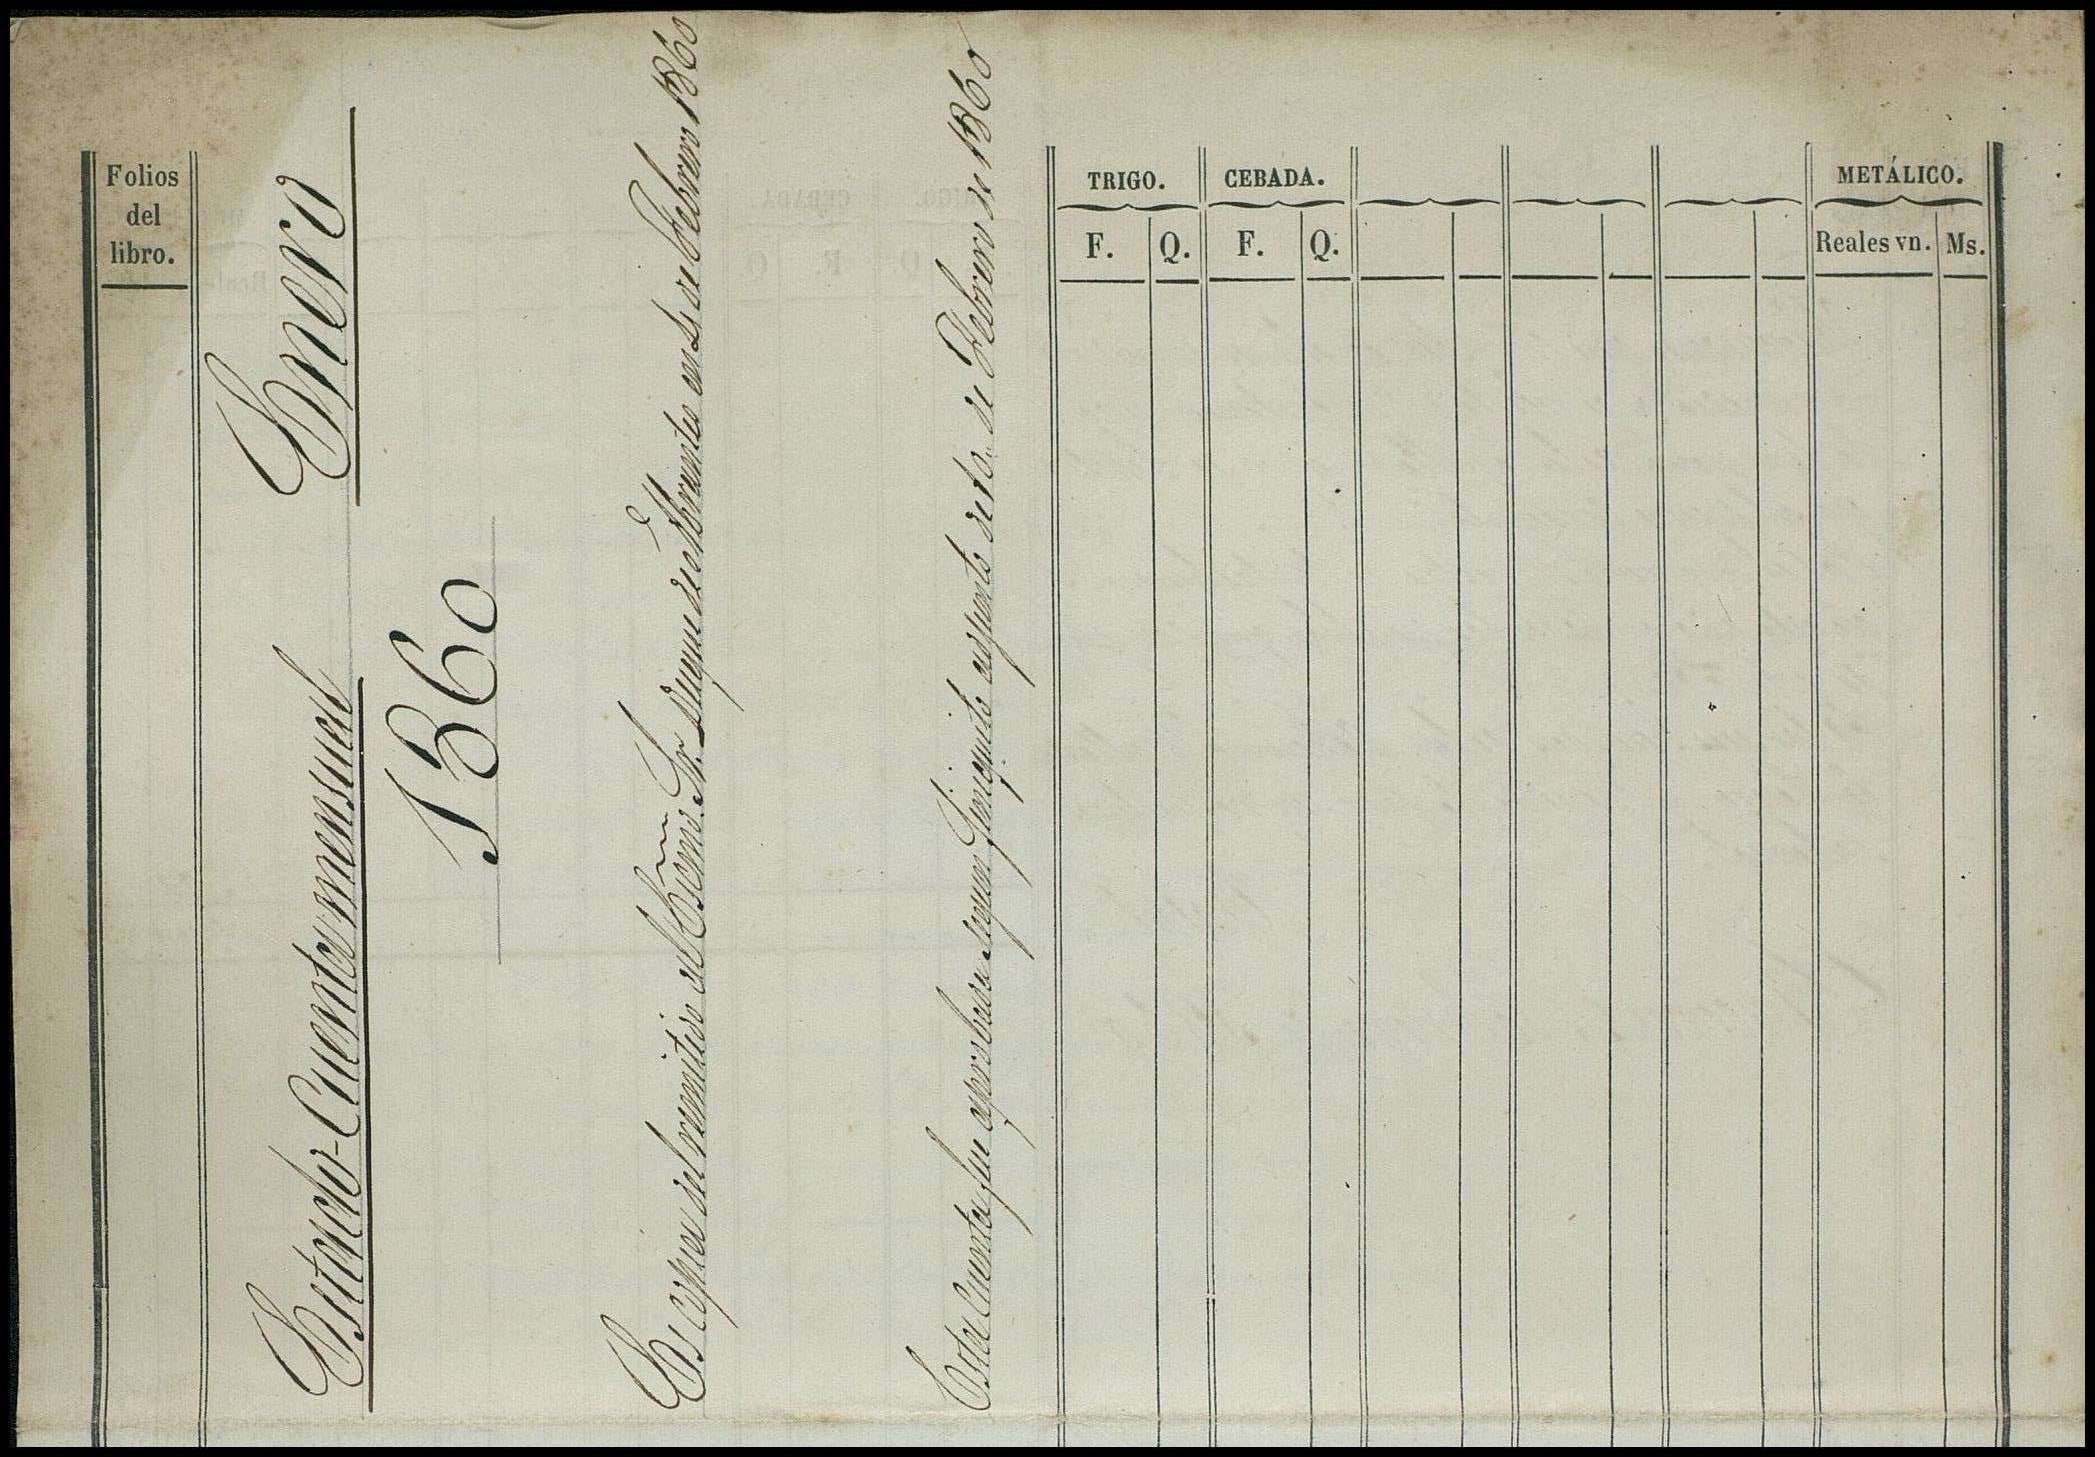 Folios
del
libro.
TRIGO.
CEBADA.
METÁLICO.
F.
Q.
F.
Q.
Reales vn.
Ms.
Estado-Cuenta mensual Enero
1860
Es copia del remitido al Excmo. Sr. Duque de Abrantes en de Febrero 1860
Esta Cuenta fue aprobada segun finiquito de Febrero de 1860